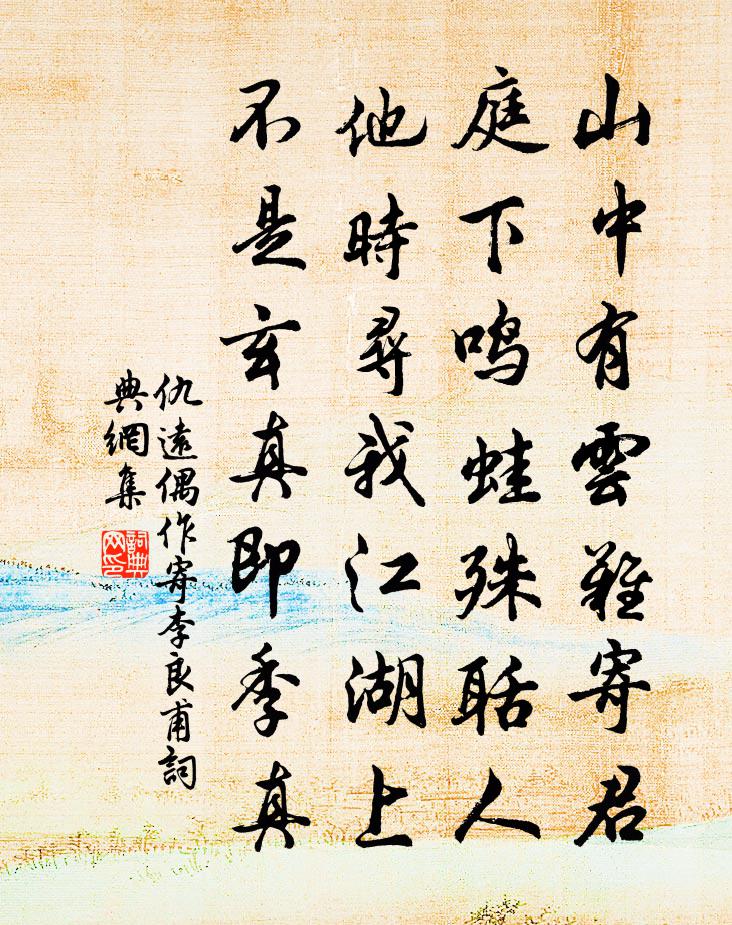 山中有雲難寄君
庭下鳴蛙殊聒人
他時尋我江湖上
不是玄真即季真
仇遠偶作寄李良甫詞
典網集
詞典
网印